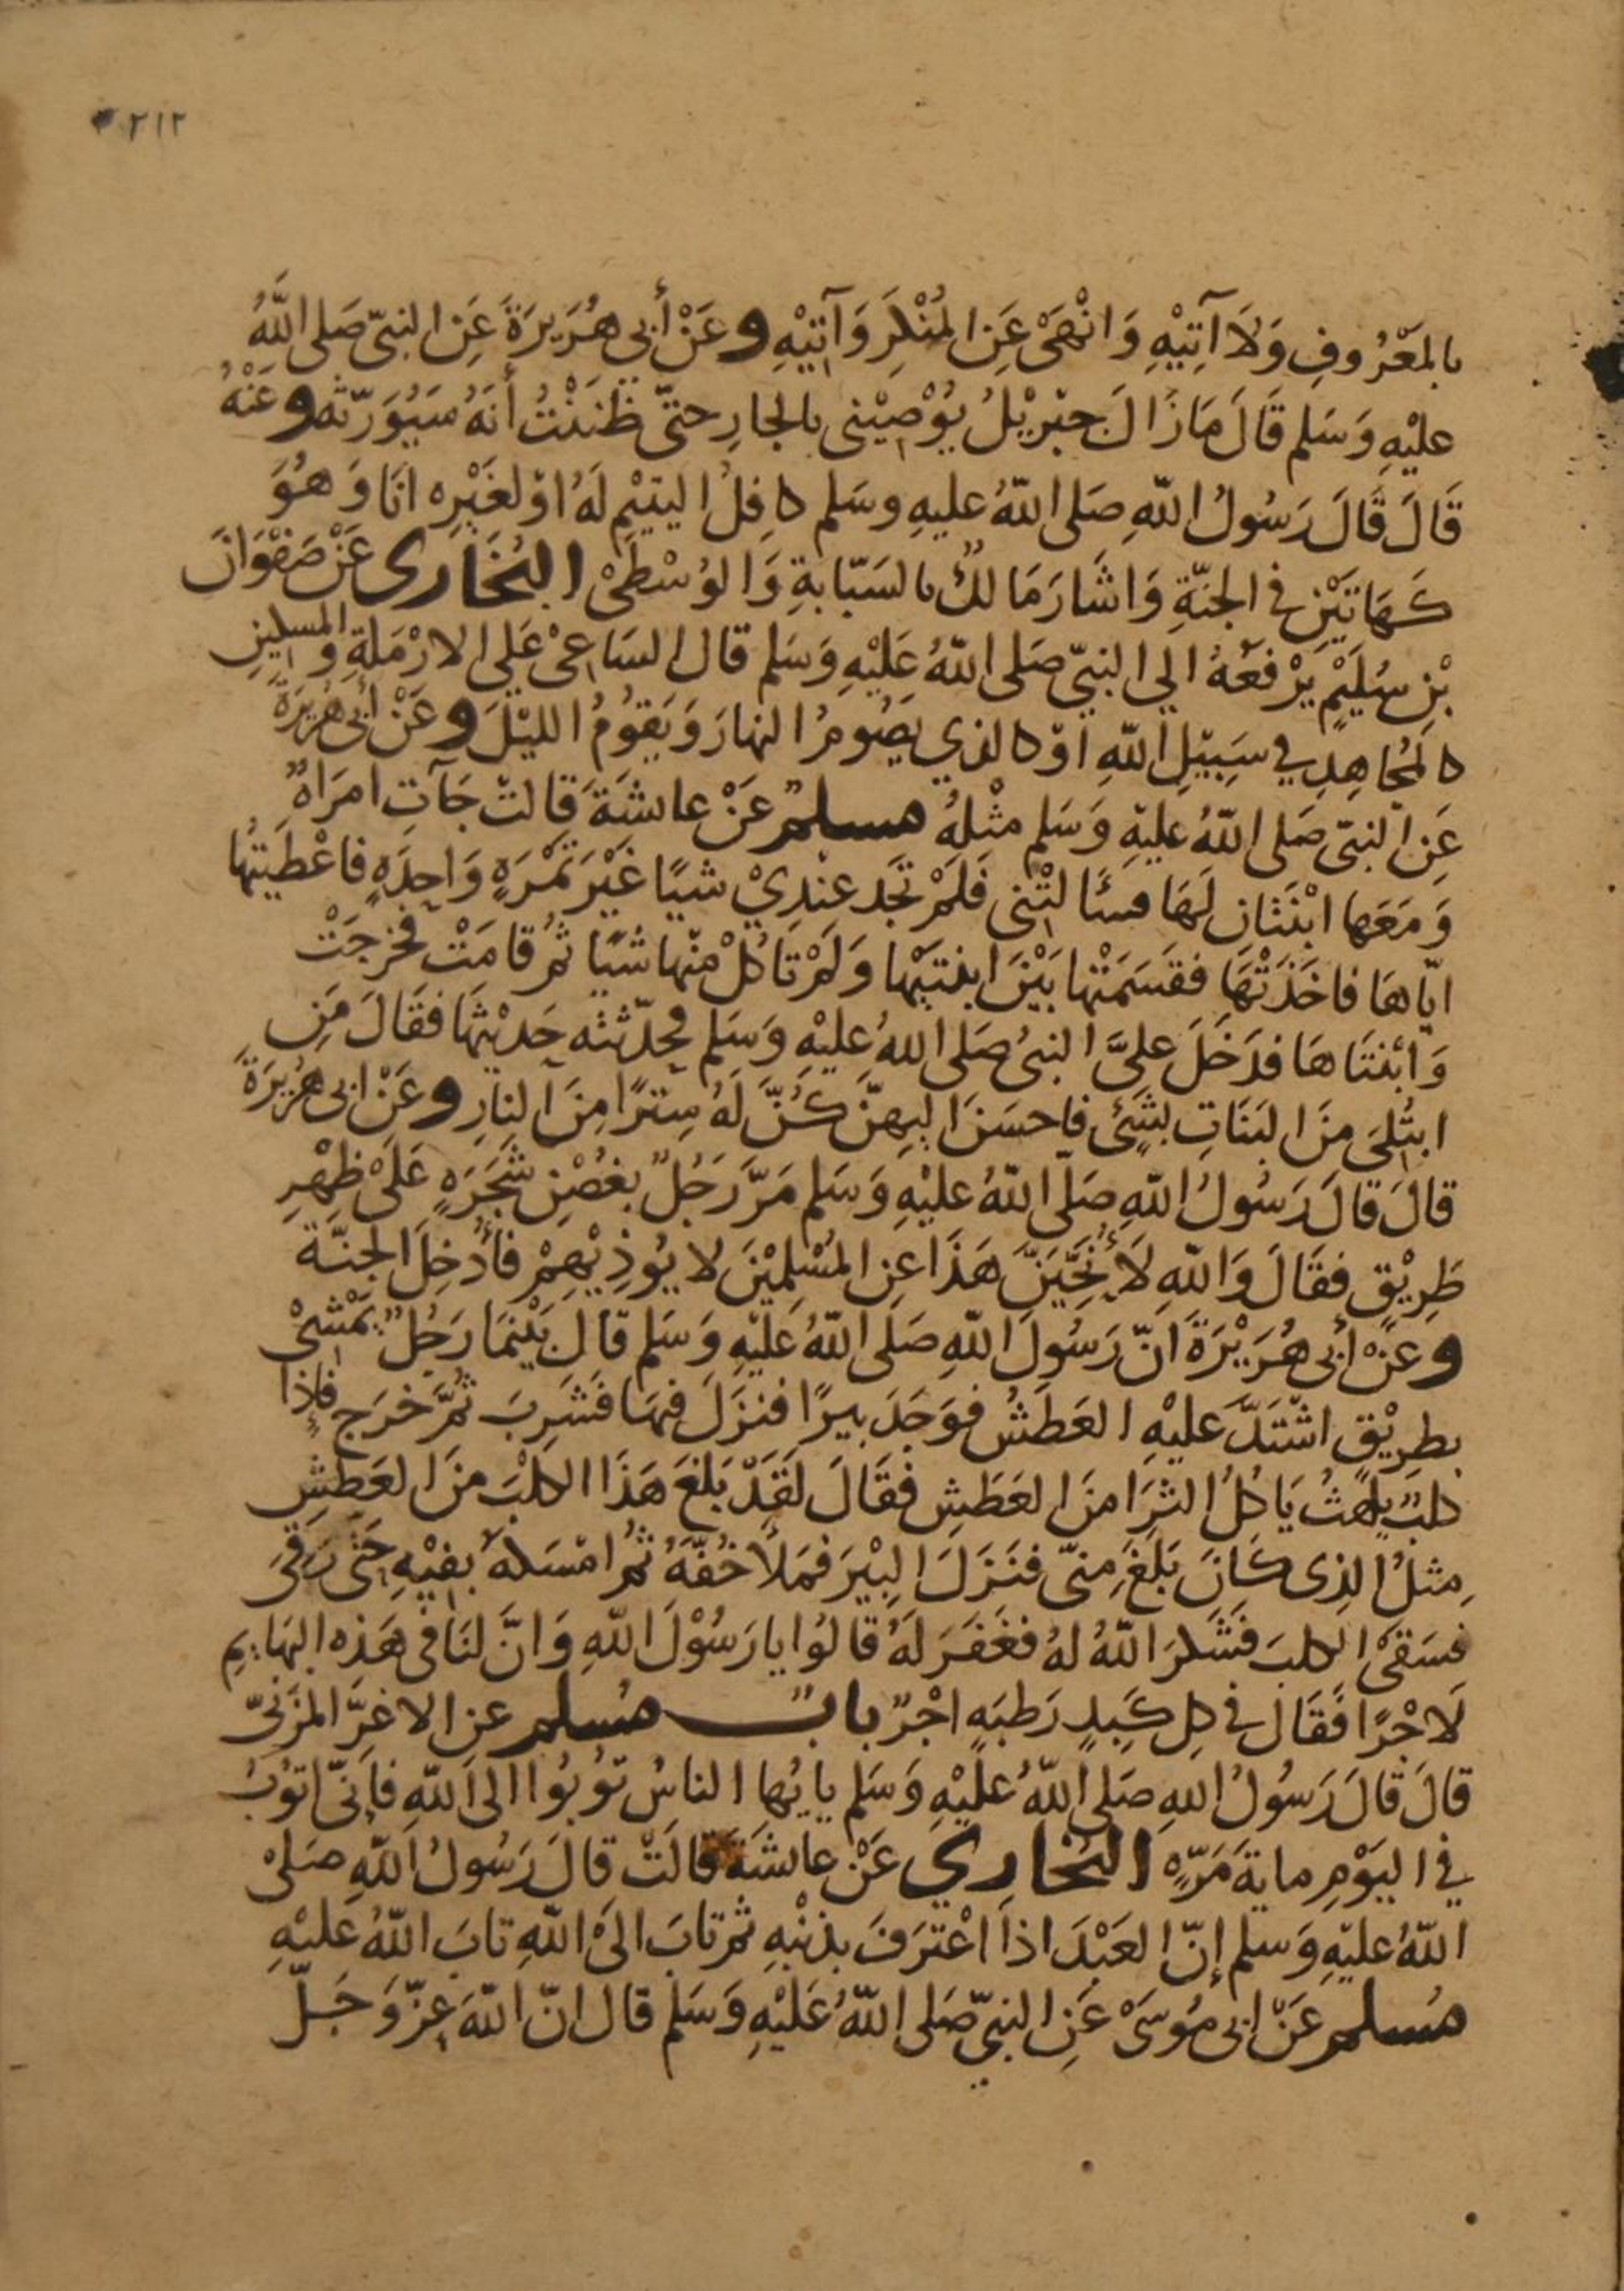 ٢١٢
بِالمَعْرُوفِ وَلَا آتِيْهِ وَانْهَى عَنِ المُنْكَرِ وَآتِيْهِ وعَنْ أَبِي هُرَيرَةَ عَنِ النبيّ صَلى اللّٰهُ
عليْهِ وَسَلم قَالَ مَا زَالَ جبْرِيْلُ يُوْصِيْنى بالجارِ حتىّ ظَنَنْتُ أَنَهُ سَيُوَرّثه وعَنْهُ
قَالَ قَالَ رَسُولُ اللّٰهِ صَلى اللّٰهُ عليهِ وسَلم كافِلُ اليتيْمِ لَهُ اوْ لغَيْرِه انَا وَهُوَ
كَهَاتَيْنِ في الجنّةِ وَاشَارَ مَالكٌ بالسَبّابةِ وَالوُسْطىْ البُخَارى عَنْ صَفْوَانَ
بْنِ سُلَيْمٍ يَرْفَعُهُ الي النبيّ صَلى اللّٰهُ عَلَيْهِ وَسَلم قال السَاعىْ عَلي الارْمَلةِ والمسكينِ
كالمُجَاهِدِ في سَبِيْلِ اللّٰهِ اوْ كالذي يَصُومُ النهارَ وَيَقوُمُ الليْلَ وعَنْ أبى هُرَيرَةَ
عَنِ النبىّ صَلى اللّٰهُ عليْهِ وَسَلم مثْلهُ مسلمٌ عَنْ عائشَةَ قالتْ جَآتِ امرَاهٌ
وَمَعَها ابْنَتَانِ لَهَا فسَألتْنى فَلَمْ تَجَد عنْدِيْ شيًا غَيْرَ تمْرَهٍ وَاحِدَهٍ فاعْطيَتُها
ايّاهَا فاخَذَتْهَا فقسَمَتْها بَيْنَ ابنتَيْها وَلَمْ تَاكُلْ منْها شيًا ثمُ قامَتْ فخرجَتْ
وَابْنَتَاهَا فدَخَلَ علىَّ النبىُ صَلى اللهُ عليْهِ وَسَلم فحدّثته حَديْثهَا فقَالَ مَنِ
ابتُلىَ منَ البَنَاتِ بشَىْءٍ فاحسَنَ اليهِنّ كُنَّ لَهُ سِترًا مِنَ النارِ وعَنْ ابى هُرَيرَةَ
قالَ قالَ رَسُولُ اللّٰهِ صَلّى اللّٰهُ عليْهِ وَسَلم مَرَّ رَجُلٌ بغُصْنِ شَجَرَهٍ عَلىْ ظهْرِ
طَرِيْقٍ فقَالَ وَاللّٰهِ لَأُنَحِّيَنَّ هَذَا عنِ المُسْلِمِيْنَ لا يُوذِيْهِمْ فأُدْخِلَ الجنّةَ
وعَنْ أبى هُرَيْرَةَ انّ رَسُولَ اللّٰهِ صَلى اللّٰهُ عَليْهِ وَسَلم قال بَيْنمَا رَجُلٌ يَمْشىْ
بطرِيْقٍ اشْتَدَّ عليْهِ العَطَشُ فوَجَدَ بيرًا فنزَلَ فيها فشَرِبَ ثُمَّ خرَج فإذا
كلبٌ يلهثُ يَاكلُ الثرَا منَ العَطَشِ فقَالَ لَقَدْ بَلغَ هَذَا الكلْبَ منَ العَطَشِ
مِثلُ الذِى كَانَ بَلغَ مِنىّ فنَزَلَ البِيْرَ فمَلأَ خُفّهُ ثُمُ امْسَكهُ بفيْهِ حَتى رَقىَ
فسَقىَ الكلبَ فَشَكَرَ اللّٰهُ لهُ فغَفَرَ لَهُ قالُوا يا رَسُوْلَ اللّٰهِ وَانَّ لنَا فى هَذِه البهَايمِ
لَاجْرًا فَقَال في كلِ كَبِدٍ رَطبَهٍ اجْرٌ بابٌ مُسلم عن الاغرِّ المُزَنىّ
قالَ قالَ رَسُولُ اللهِ صَلى اللّٰهُ عليْهِ وَسَلم يا يُها الناسُ توُبُوا الى اللّٰهِ فإنىّ اتوُبُ
في اليَوْمِ مايةَ مَرّهٍ البُخَارِي عَنْ عائشَةَ قالَتْ قالَ رَسُولُ اللّٰهِ صَلىْ
اللّٰهُ عليْهِ وَسلم إنّ العَبْدَ اذا اعْترَفَ بذنْبِهِ ثم تابَ الىَ اللّٰهِ تابَ اللّٰهُ عَليْهِ
مُسلم عَنْ ابى مُوسَىْ عَنِ النبيّ صَلى اللّٰهُ عَلَيْهِ وَسَلم قال انّ اللّٰهَ عزّ وَجَلّ